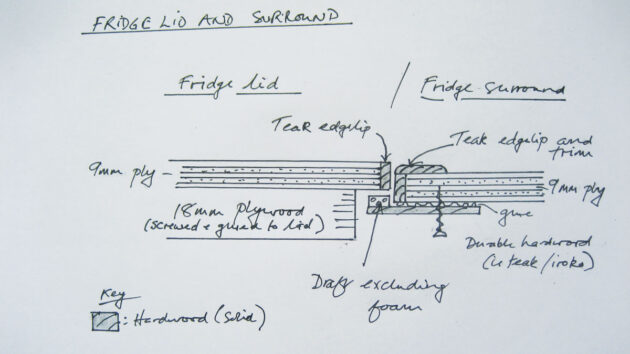 FRIDGE LID AND SURROUND
Fridge lid
/ Fridge surround
Teak edgelip
Teak edgelip and
trim
9mm ply
9mm ply
18mm plywood
(screwed & glued to lid)
glue
Durable hardwood
(ie teak/iroko)
Draft excluding
foam
Key
: Hardwood (solid)